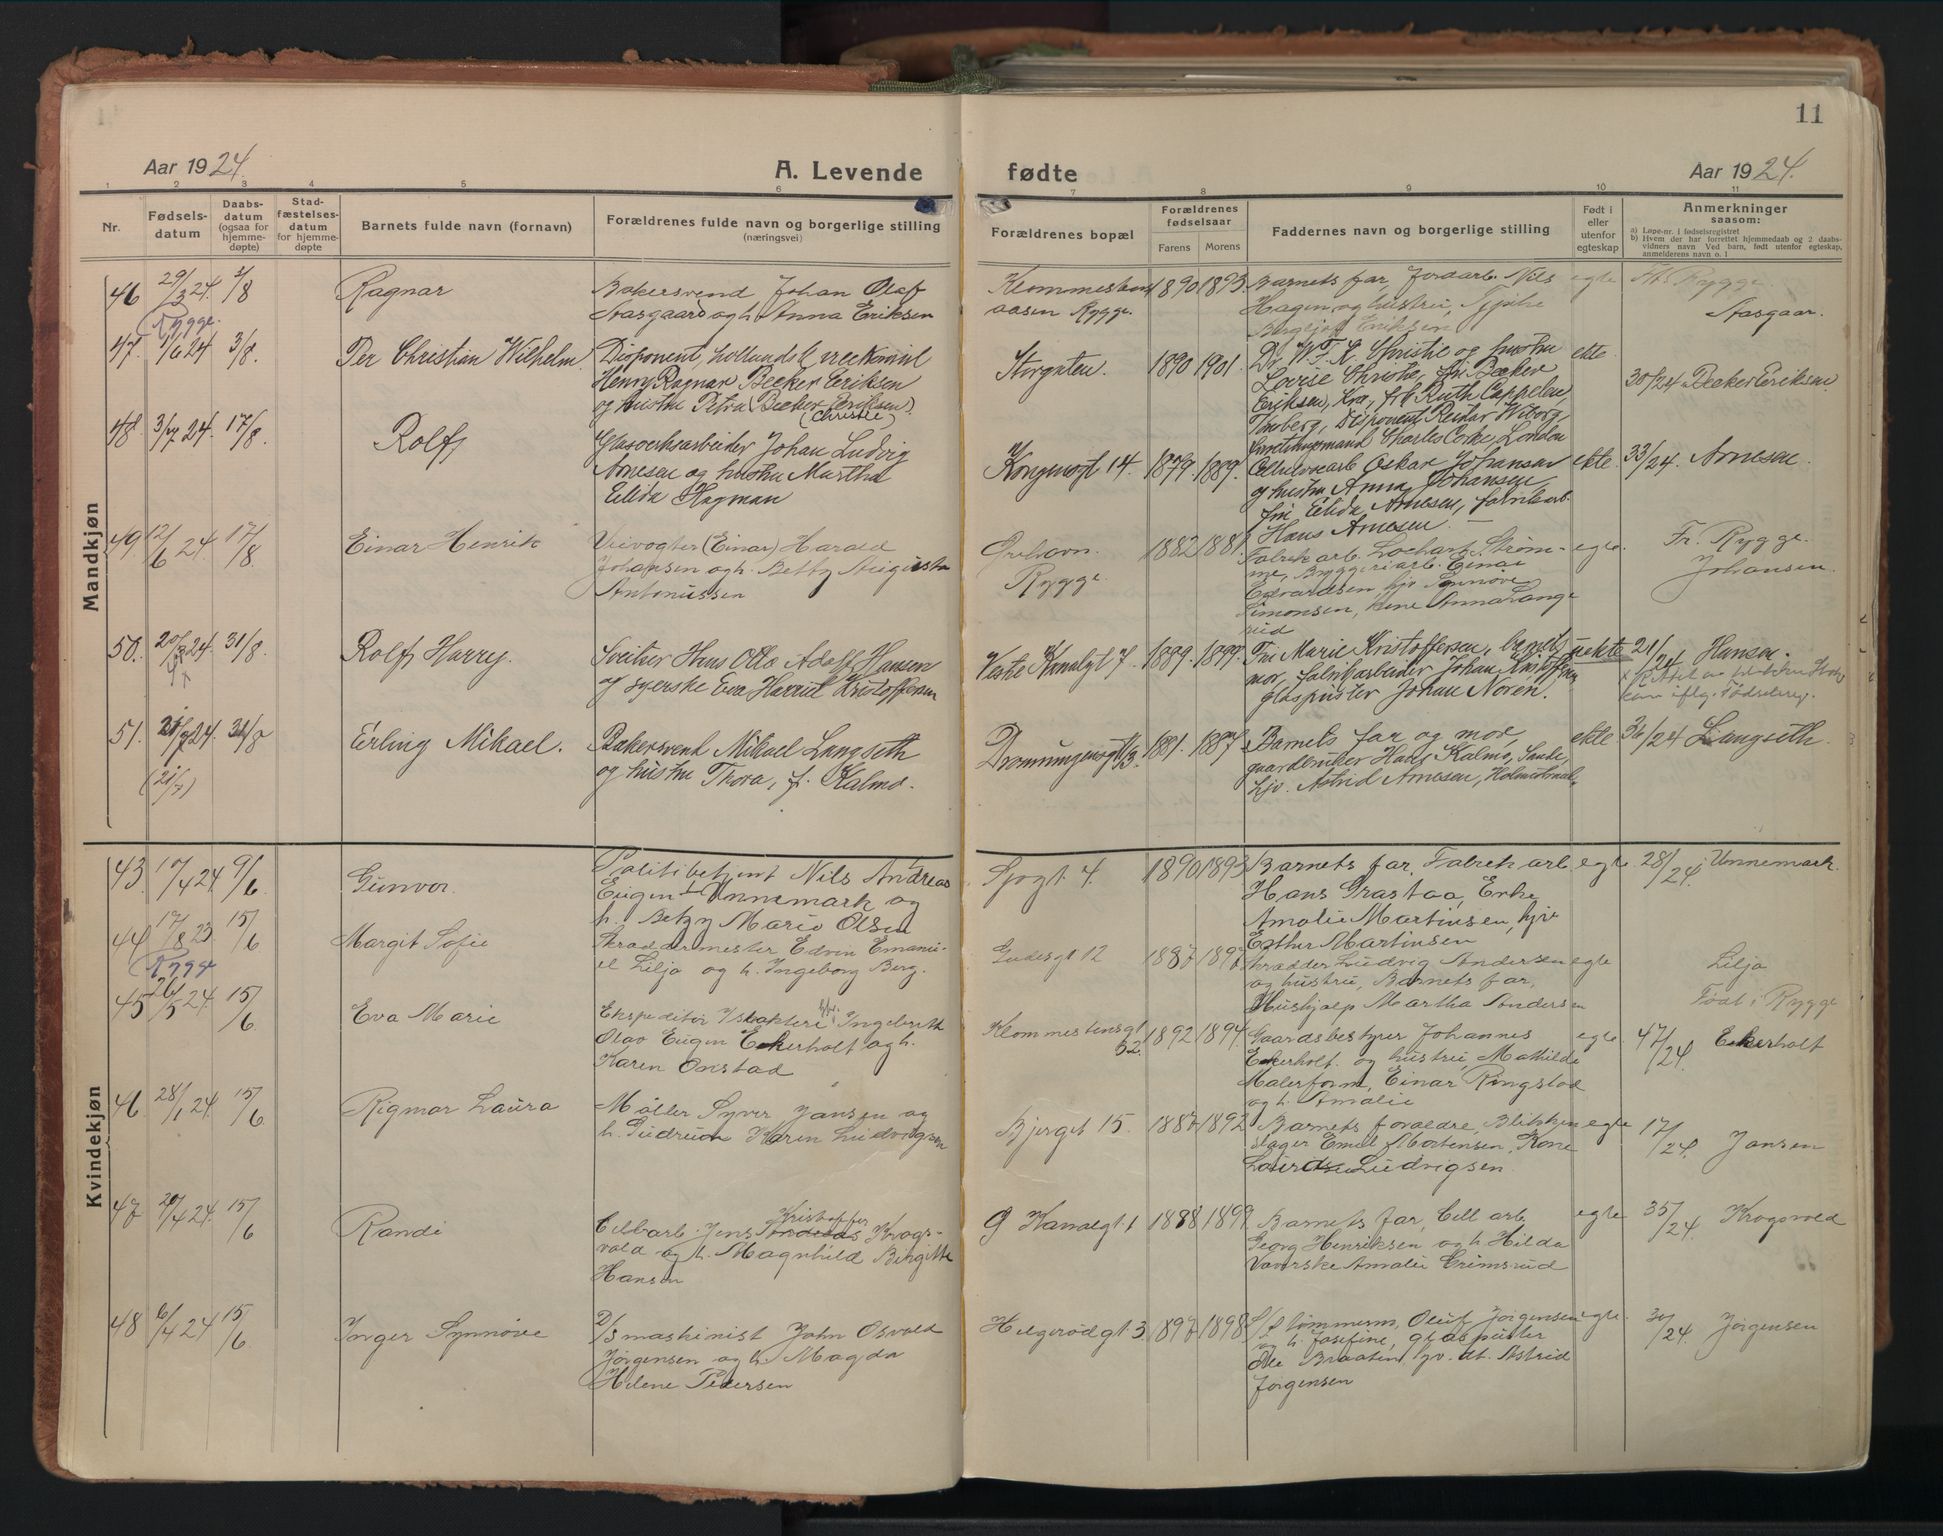 11
Aar 1924.
A. Levende
fødte
Aar 1924.
1 2 3 4 5 6 7 8 9 10 11
Nr.
Fødsels-
datum
Daabs-
datum
(ogsaa for
hjemme-
døpte)
Stad-
fæstelses-
datum
for hjemme-
døpte
Barnets fulde navn (fornavn)
Forældrenes fulde navn og borgerlige stilling
(næringsvei)
Forældrenes bopæl
Forældrenes
fødselsaar
Farens Morens
Faddernes navn og borgerlige stilling
Født i
eller
utenfor
egteskap
Anmerkninger
saasom:
a) Løpe-nr. i fødselsregistret
b) Hvem der har forrettet hjemmedaab og 2 daabs-
vidners navn Ved barn, født utenfor egteskap,
anmelderens navn o. l
Mandkjøn
46 29/3 24. 3/8 Ragnar
Rygge.
Bakersvend Johan Olaf
Aasgaard og h. Anna Eriksen
aasen Rygge.
1890 1893
Barnets far, Jordarb. Nils
Hagen og hustru,
Eriksen
egte
Rygge.
Aasgaar.
47. 1/6 24 3/8. Per Christian Wilhelm.
Disponent,
Henry Ragnar Becker Eriksen
og hustru Petra (Becker Eriksen).
(Christie)
Storgaten. 1890 1901.
Dr. W. F. K. Christie og hustru
Lovise Christie, fri Becker
Eriksen, Ruth Cappelen,
Disponent Reidar Wiborg,
Charles London
ekte
30/24 Becker Eriksen
48. 3/7 24. 17/8. Rolf
Glasverksarbeider Johan Ludvig
Arnesen og hustru Martha
Elida Hagman
Kongensgt 14. 1879. 1889.
Cellulosearb Oskar Johansen
og hustru Anna Johansen
fri Elida Arnesen, fabrikarb.
Hans Arnesen.
ekte. 33/24. Arnesen.
49. 12/6 24. 17/8 Einar Henrik
Veivogter (Einar) Harald
Johansen og h. Betty Augusta
Antonussen
Ørehavn.
Rygge
1882 1881.
Fabrik arb. Lochart Strøm-
me, Bryggeriarb. Einar
Edvardsen, hjv Synnøve
Simonsen, kone Anna Lange
rud
egte.
Fr. Rygge.
Johansen.
50. 20/ 24. 31/8. Rolf Harry.
Sveitser Hans Otto Adolf Hansen
og syerske Eva Harriet Kristoffersen
Vestre Kanalgt 7. 1889. 1899.
Fru Marie Kristoffersen, barnets
mor, fabrikarbeider Johan Kristoffersen,
glaspuster Johan Noren.
uekte 21/24 Hansen.
iflg. Fødselsreg.
51. 21/7 24. 31/8
(21/7)
Erling Mikael.
Bakersvend Mikael Langseth
og hustru Thora, f. Kalmo.
Dronningensgt 1881. 1887.
Barnets far og mor,
gaardbruker Hans Kalmo, Sande,
hjv. Astrid Arnesen, Holmestrand.
ekte 36/24 Langseth.
Kvindekjøn
43. 17/4 24 9/6 Gunvor.
Politibetjent Nils Andreas
Eugen Unnemark og
h. Betzy Marie Olsen
Sjøgt 4. 1890 1893
Barnets far, Fabrik arb
Hans Grastaa, Enke
Amalie Martinsen, hjv
Esther Martinsen
egte. 28/24. Unnemark.
44 17/8 23 15/6 Margit Sofie
Rygge
Skræddermester Edvin Emanu-
el Lilja og h. Ingeborg Berg.
Gudesgt 12 1887 1897
skrædder Ludvig Andersen
og hustru, Barnets far,
Hushjælp Martha Andersen
egte
Lilja
Født i Rygge
45 26/5 24. 15/6 Eva Marie
Ekspeditør Ingebreth
Olav Eugen Ekerholt og h.
Karen Onstad
Klommestensgt
52.
1892 1894.
Gaardsbestyrer Johannes
Ekerholt. og hustru, Mathilde
Malerform, Einar Ringstad
og h. Amalie
egte. 47/24. Ekerholt
46 28/1 24. 15/6 Rigmor Laura
Møller Syver Jansen og
h. Gudrun Karen Ludvigsen
Bjergt 15. 1887 1892
Barnets forældre, Blikken
slager Emil Mortensen, Kone
Laura Ludvigsen.
egte 17/24. Jansen
47 20/4 24. 15/6 Randi
Cellarb. Jens Kristoffer Krogs-
vold og h. Magnhild Birgitte
Hansen
Kanalgt 1 1888 1899
Barnets far, Cell arb
Georg Henriksen og h Hilda
Vaverske Amalie Grimsrud
egte 35/24. Krogsvold
48 6/4 24 15/6 Inger Synnøve
D/S maskinist John Osvald
Jørgensen og h. Magda
Helene Pedersen
Helgerødgt 3. 1897 1898
Oluf Jørgensen
og h. Josefine, glaspuster
Ole Braaten, Astrid
Jørgensen
egte. 30/24. Jørgensen